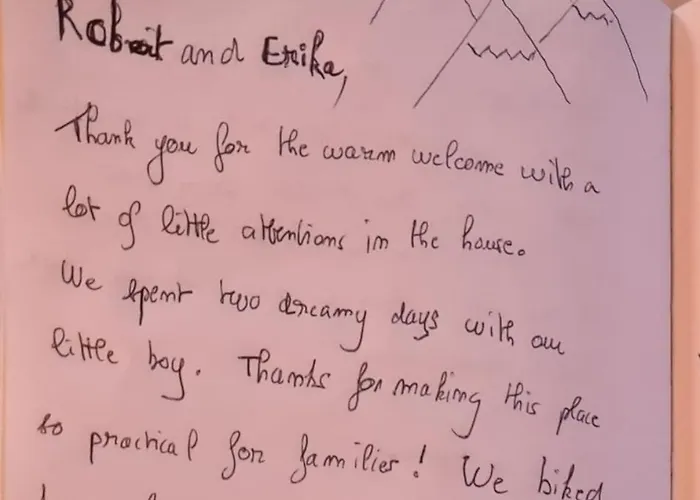 Robert and Erika,
Thank you for the warm welcome with a
lot of little attentions in the house.
We spent two dreamy days with our
little boy. Thanks for making this place
so practical for families! We biked